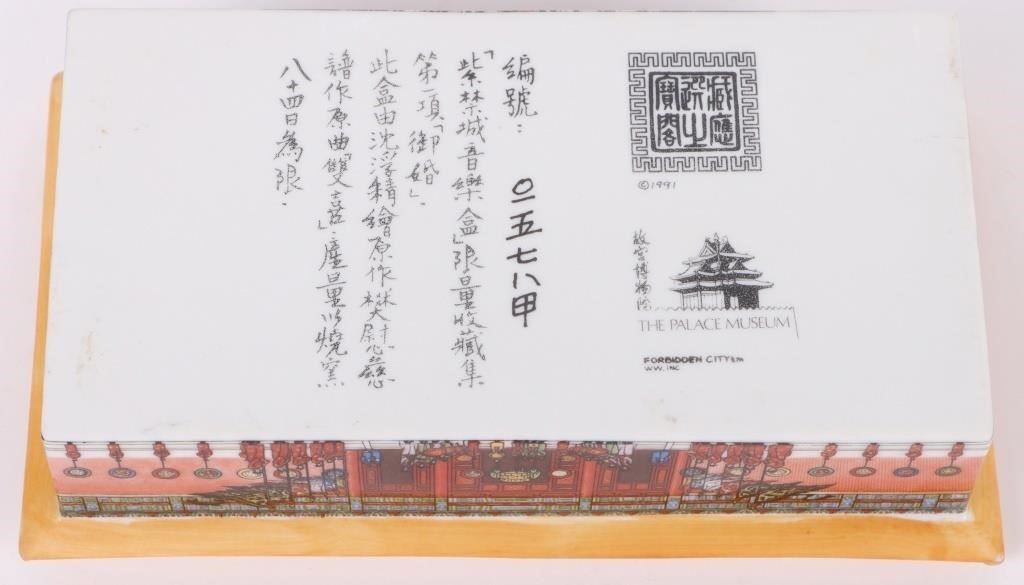 臧應
選之
寶閣
©1991
故宮博物院
THE PALACE MUSEUM
FORBIDDEN CITY TM
WW. INC
編號：〇五七八甲
「紫禁城音樂盒」限量收藏集
第一項「御婚」.
此盒由沈浮精繪原作樊慰慈
譜作原曲「雙喜」.產量以燒窯
八十四日為限.